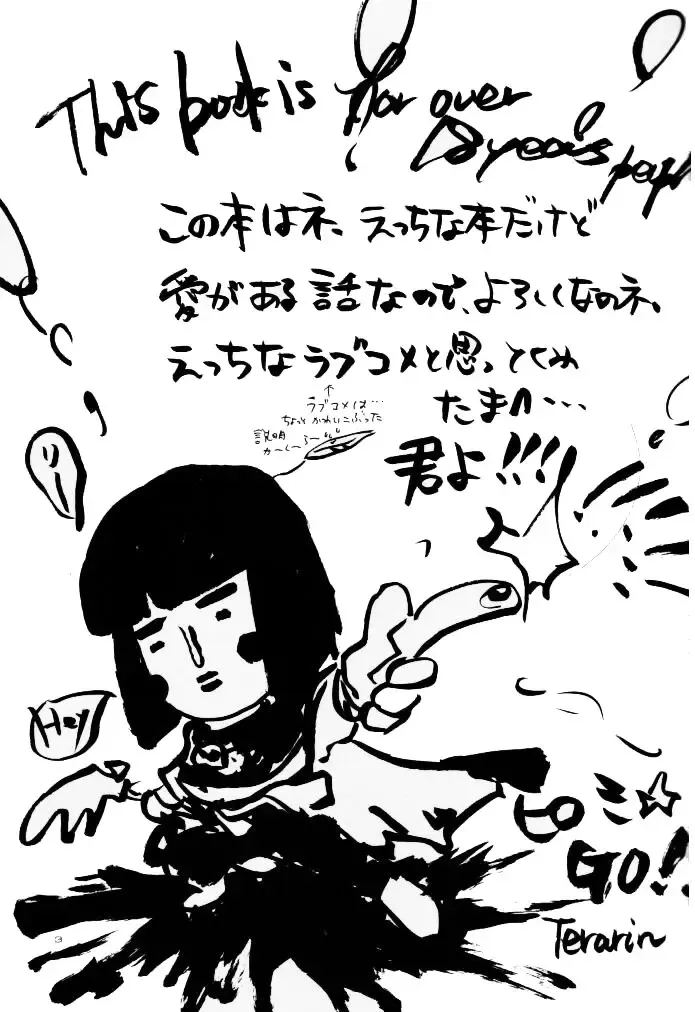 This book is for over
18 years people
この本はネ、えっちな本だけど
愛がある話なので、よろしくなのネ。
えっちなラブコメと思っとくみ
たまへ…
↑
ラブコメは…
ちょっとかわいこぶった
説明
か〜く〜ろ〜
君よ!!!
リー
Hey
ヒロミ☆
GO!!
Terarin
3